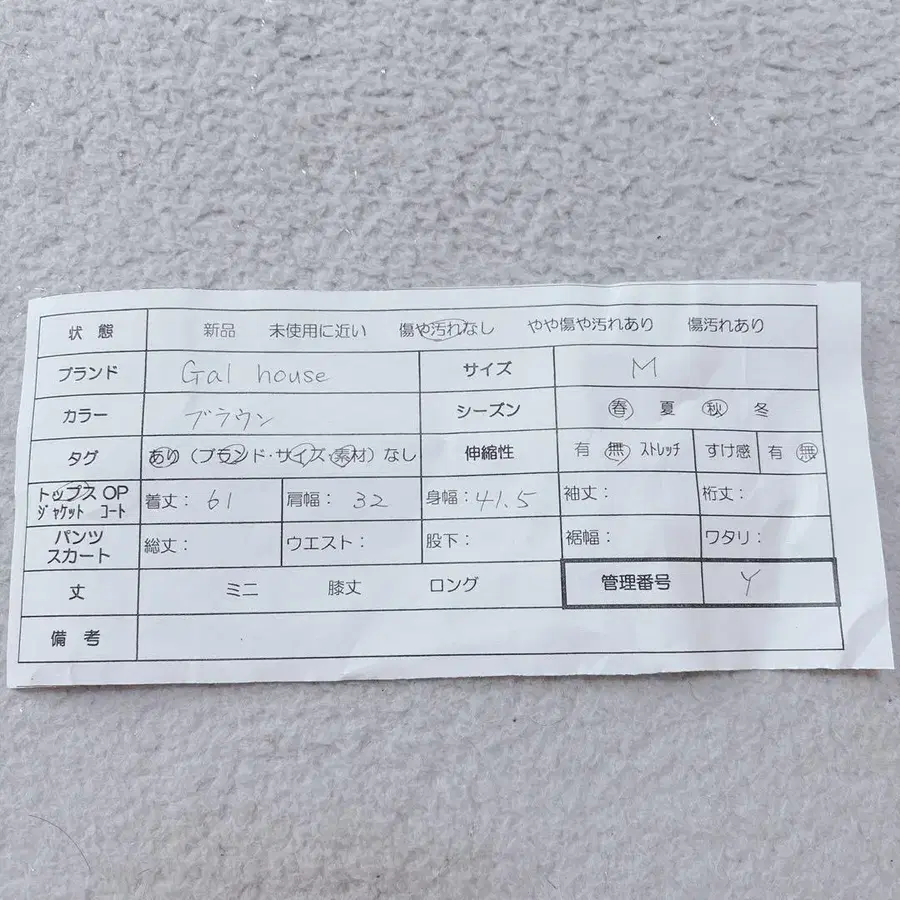 状 態 新品 未使用に近い 傷や汚れなし やや傷や汚れあり 傷汚れあり
ブランド Gal house サイズ M
カラー ブラウン シーズン 春 夏 秋 冬
タグ あり（ブランド・サイズ・素材）なし 伸縮性 有 無 ストレッチ すけ感 有 無
トップス OP
ジャケット コート 着丈： 61 肩幅： 32 身幅：41.5 袖丈： 裄丈：
パンツ
スカート 総丈： ウエスト： 股下： 裾幅： ワタリ：
丈 ミニ 膝丈 ロング 管理番号 Y
備 考